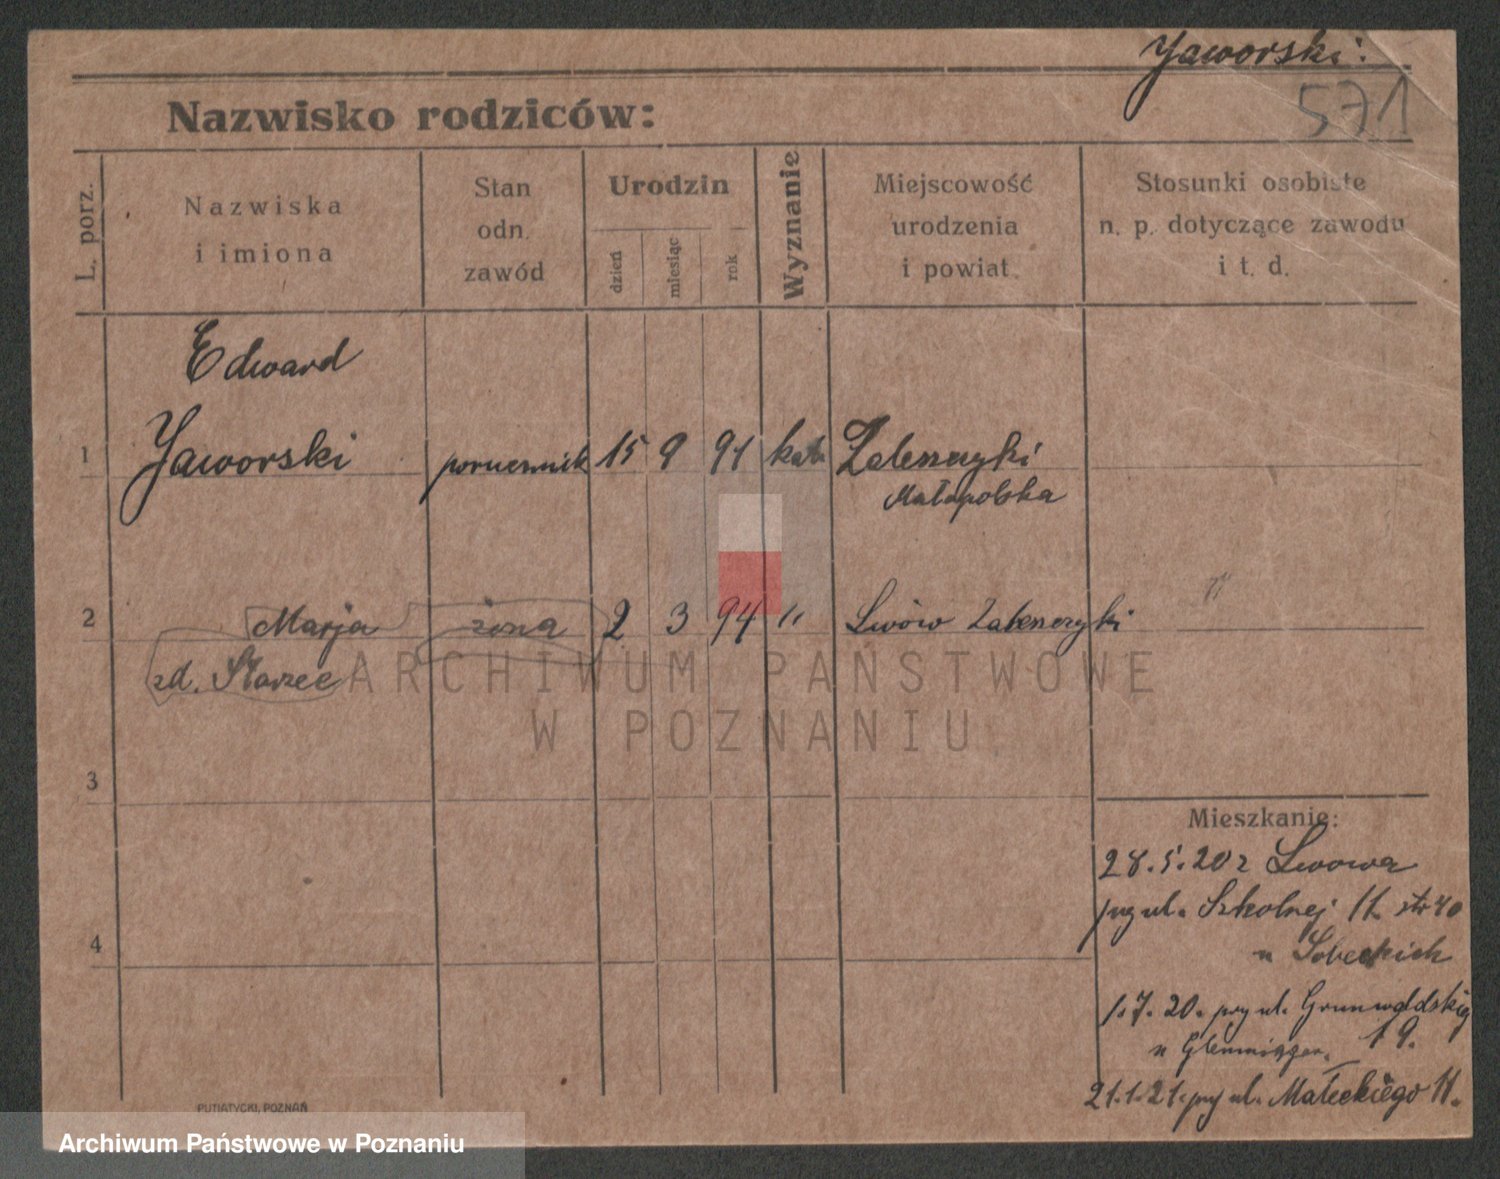 Jaworski:
571
Nazwisko rodziców:
L. porz.
Nazwiska
i imiona
Stan
odn.
zawód
Urodzin
dzień
miesiąc
rok
Wyznanie
Miejscowość
urodzenia
i powiat.
Stosunki osobiste
n. p. dotyczące zawodu
i t. d.
Edward
1 Jaworski porucznik 15 9 91 kat. Zaleszczyki
Małopolska
2 Marja żona 2 3 94 " Lwów Zaleszczyki
zd. Starzec
ARCHIWUM PAŃSTWOWE
W POZNANIU
3
Mieszkanie:
28.5.20 z Lwowa
przy ul. Szkolnej 11. str 40
4
u Sobeckich
1.7.20. przy ul. Grunwaldskiej
u 19.
21.1.21. przy ul. Małeckiego 11.
PUTIATYCKI, POZNAŃ
Archiwum Państwowe w Poznaniu